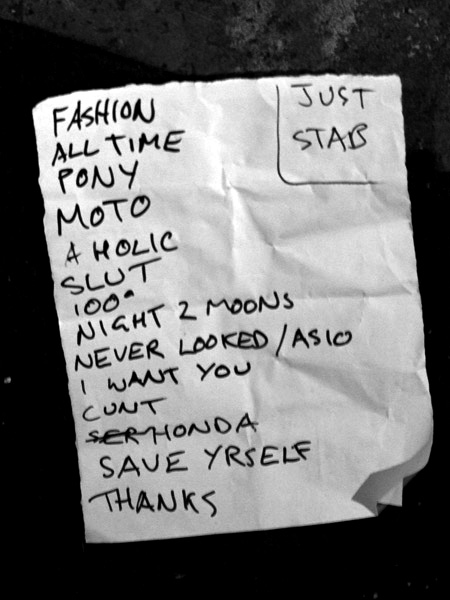 FASHION
ALL TIME
PONY
MOTO
A HOLIC
SLUT
100°
NIGHT 2 MOONS
NEVER LOOKED / ASIO
I WANT YOU
CUNT
HONDA
SAVE YRSELF
THANKS
JUST
STAB